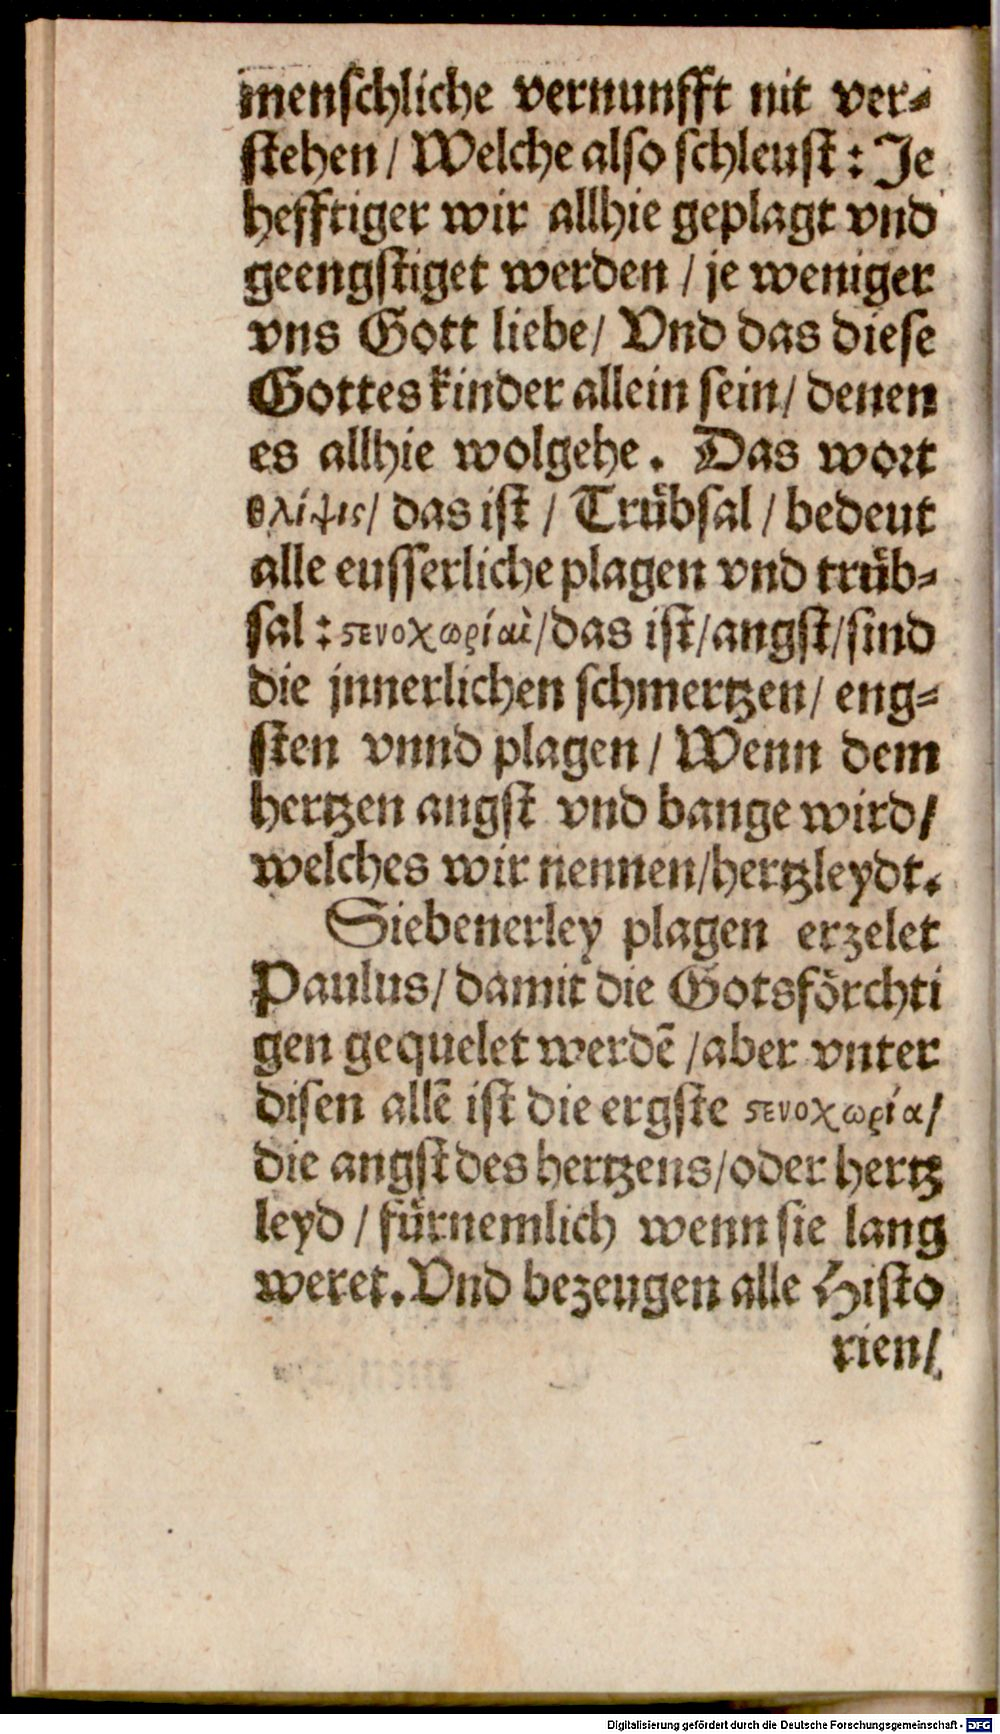 menschliche vernunfft nit ver⸗
stehen / Welche also schleust : Je
hefftiger wir allhie geplagt vnd
geengstiget werden / je weniger
vns Gott liebe / Vnd das diese
Gottes kinder allein sein / denen
es allhie wolgehe. Das wort
θλίψις / das ist / Trübsal / bedeut
alle eusserliche plagen vnd trüb⸗
sal : ϛενοχωρίαὶ / das ist / angst / sind
die jnnerlichen schmertzen / eng⸗
sten vnnd plagen / Wenn dem
hertzen angst vnd bange wird /
welches wir nennen / hertzleydt.
Siebenerley plagen erzelet
Paulus / damit die Gotsförchti
gen gequelet werdē / aber vnter
disen allē ist die ergste ϛενοχωρία /
die angst des hertzens / oder hertz
leyd / fürnemlich wenn sie lang
weret. Vnd bezeugen alle Histo
rien /
Digitalisierung gefördert durch die Deutsche Forschungsgemeinschaft - DFG